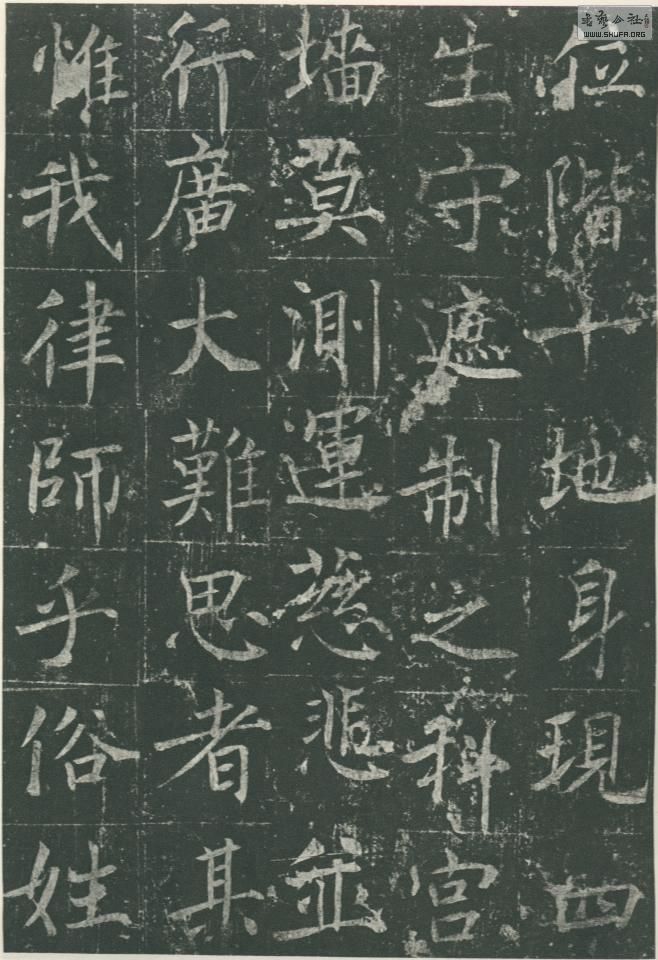 位階十地身現四
生守遮制之科宮
墻莫測運慈悲並
行廣大難思者其
惟我律師乎俗姓
WWW.SHUFA.ORG